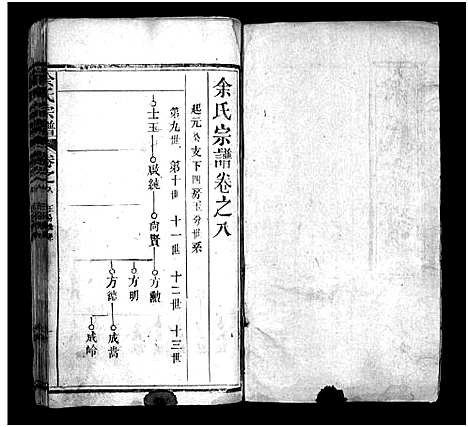 余氏宗譜卷之八
起元公支下四房玉分世系
第九世 第十世 十一世 十二世 十三世
士玉 啟純 尚賢 方勳
方明
方德 成嵩
成岭
余氏宗譜 卷之八